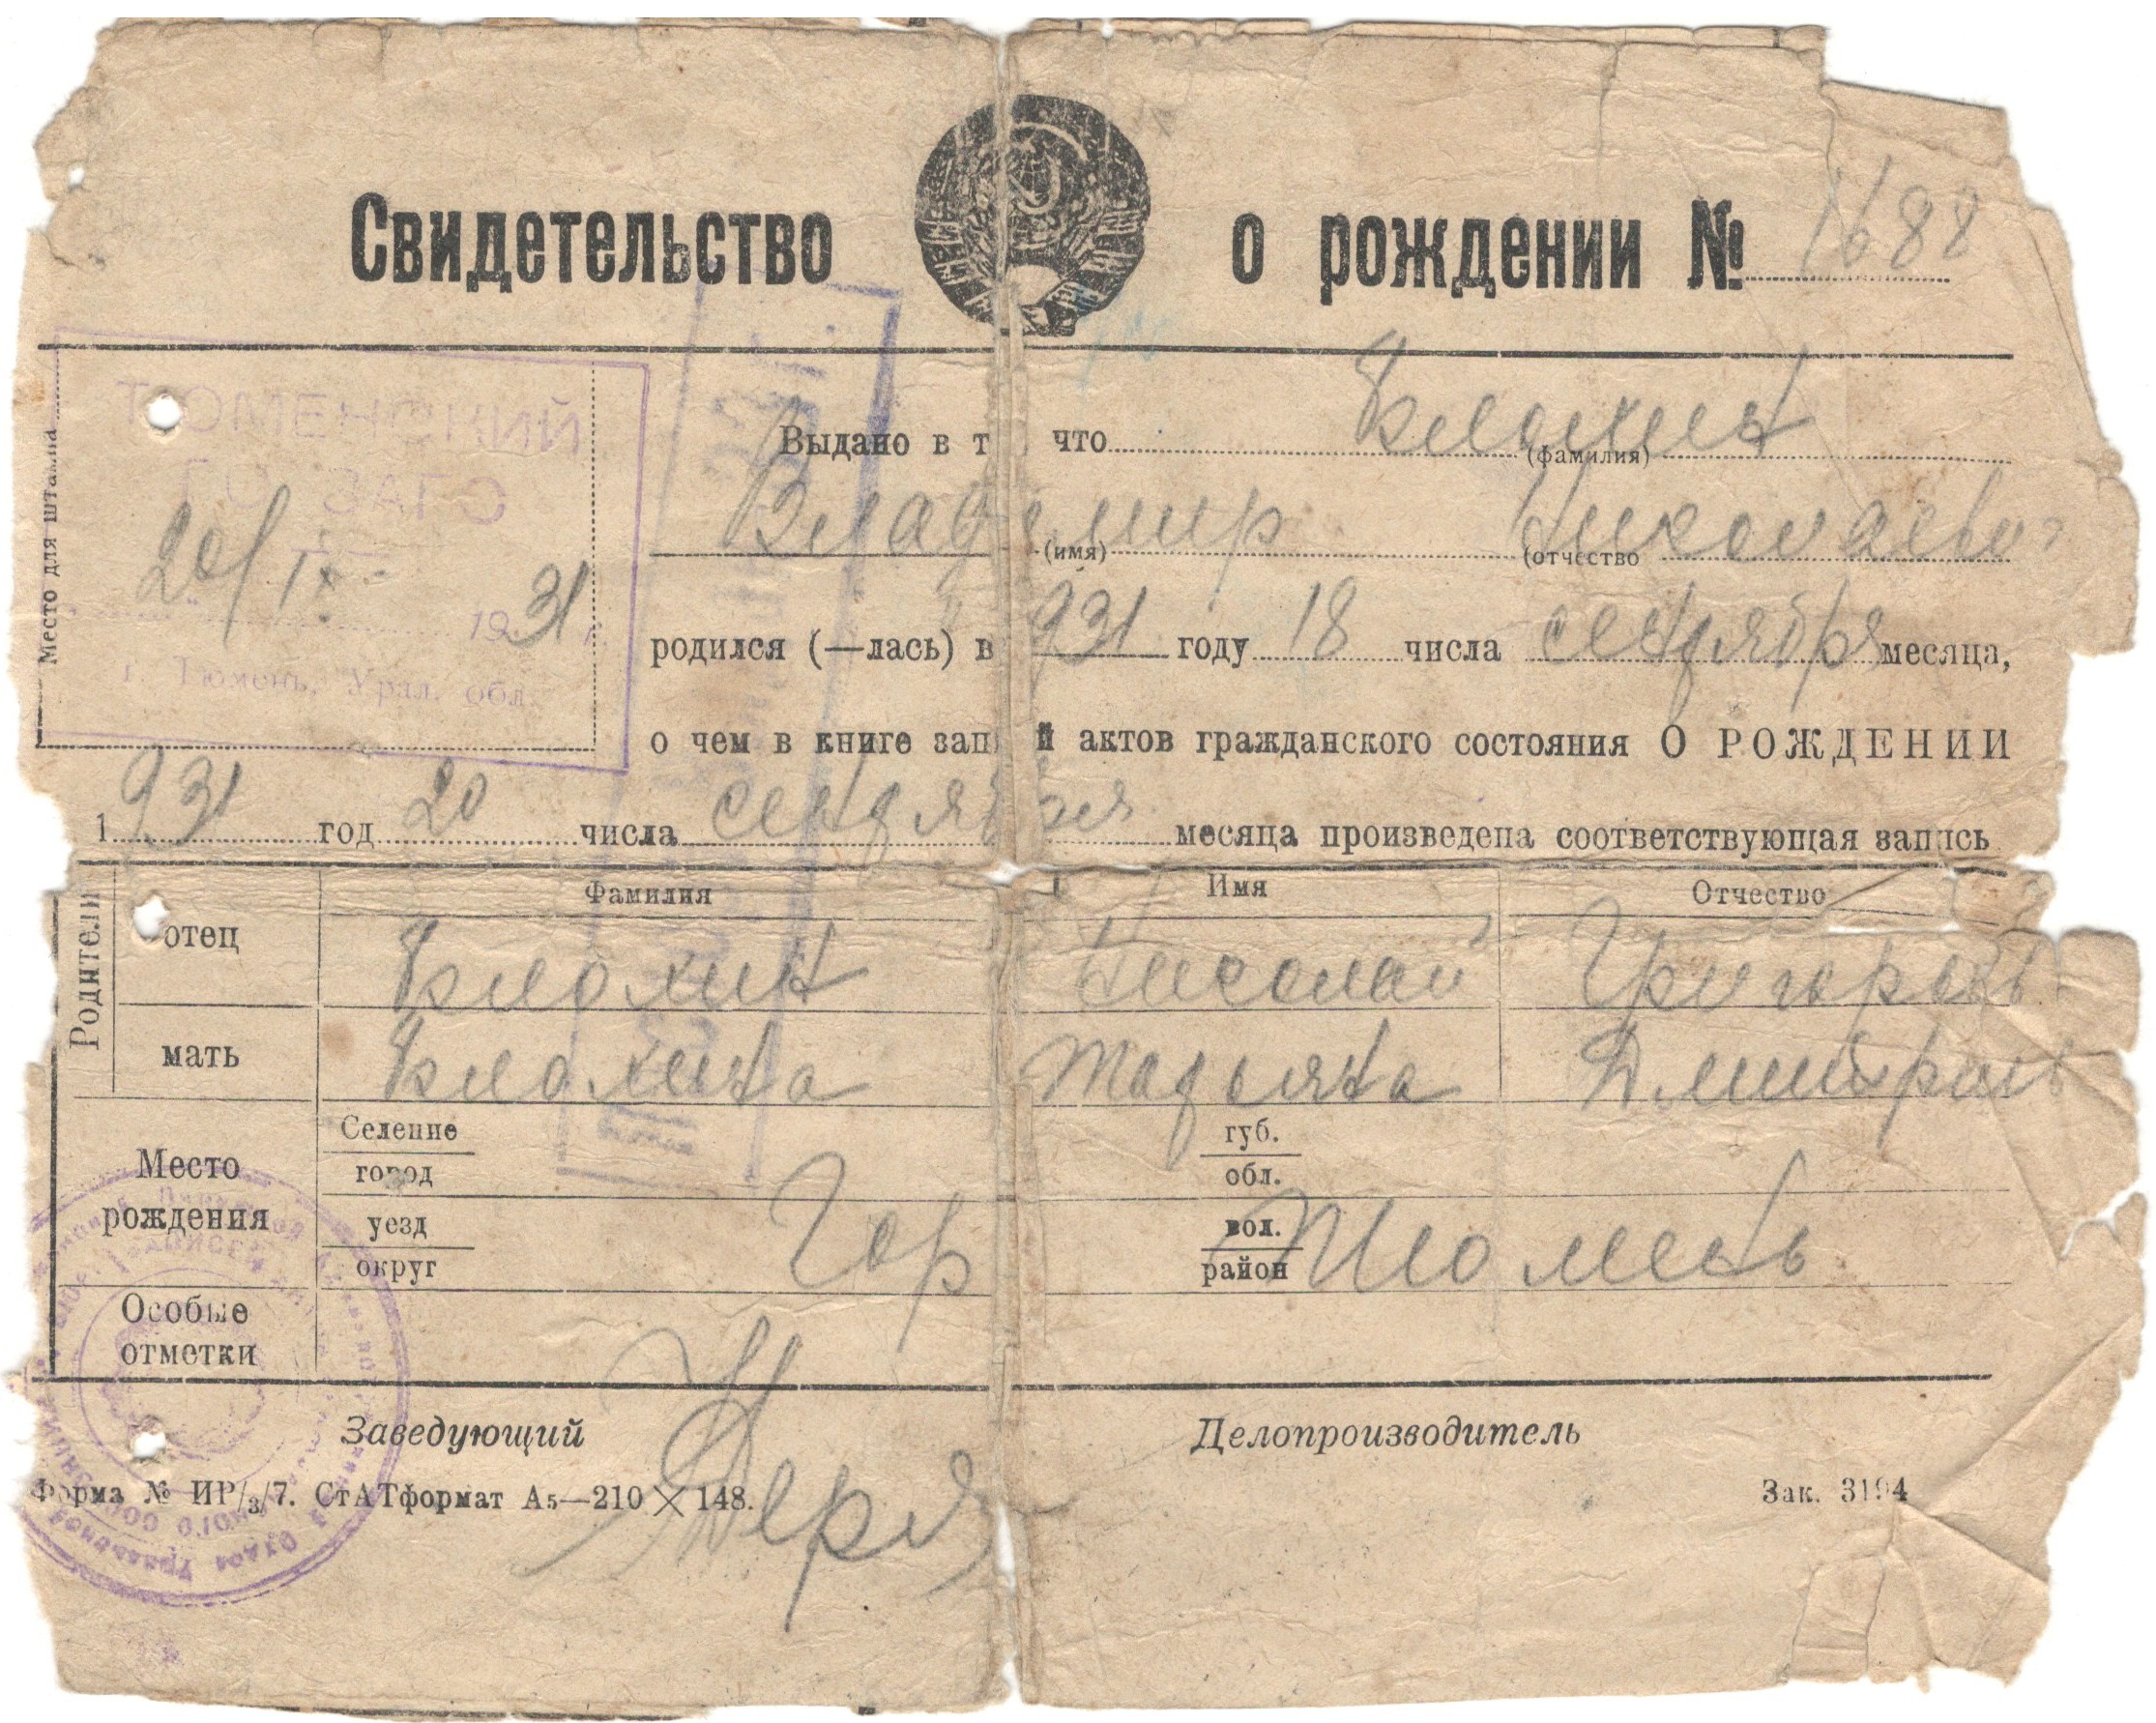 Свидетельство о рождении № 1688
Место для штампа
ТЮМЕНСКИЙ
ГО ЗАГС
20/IX 1931 г.
г. Тюмень, Урал. обл.
Выдано в т что Блохин
(фамилия)
Владимир Николаевич
(имя) (отчество
родился (—лась) в 931 году 18 числа сентября месяца,
о чем в книге запи й актов гражданского состояния О РОЖДЕНИИ
1931 год 20 числа сентября месяца произведена соответствующая запись
Родители
Фамилия Имя Отчество
отец Блохин Николай Григорьев
мать Блохина Татьяна Дмитриев
Место рождения
Селение губ.
город обл.
уезд вол.
Гор Тюмень
округ район
Особые
отметки
Заведующий Делопроизводитель
Форма № ИР/3/7. СтАТформат А5—210×148. Зак. 3194